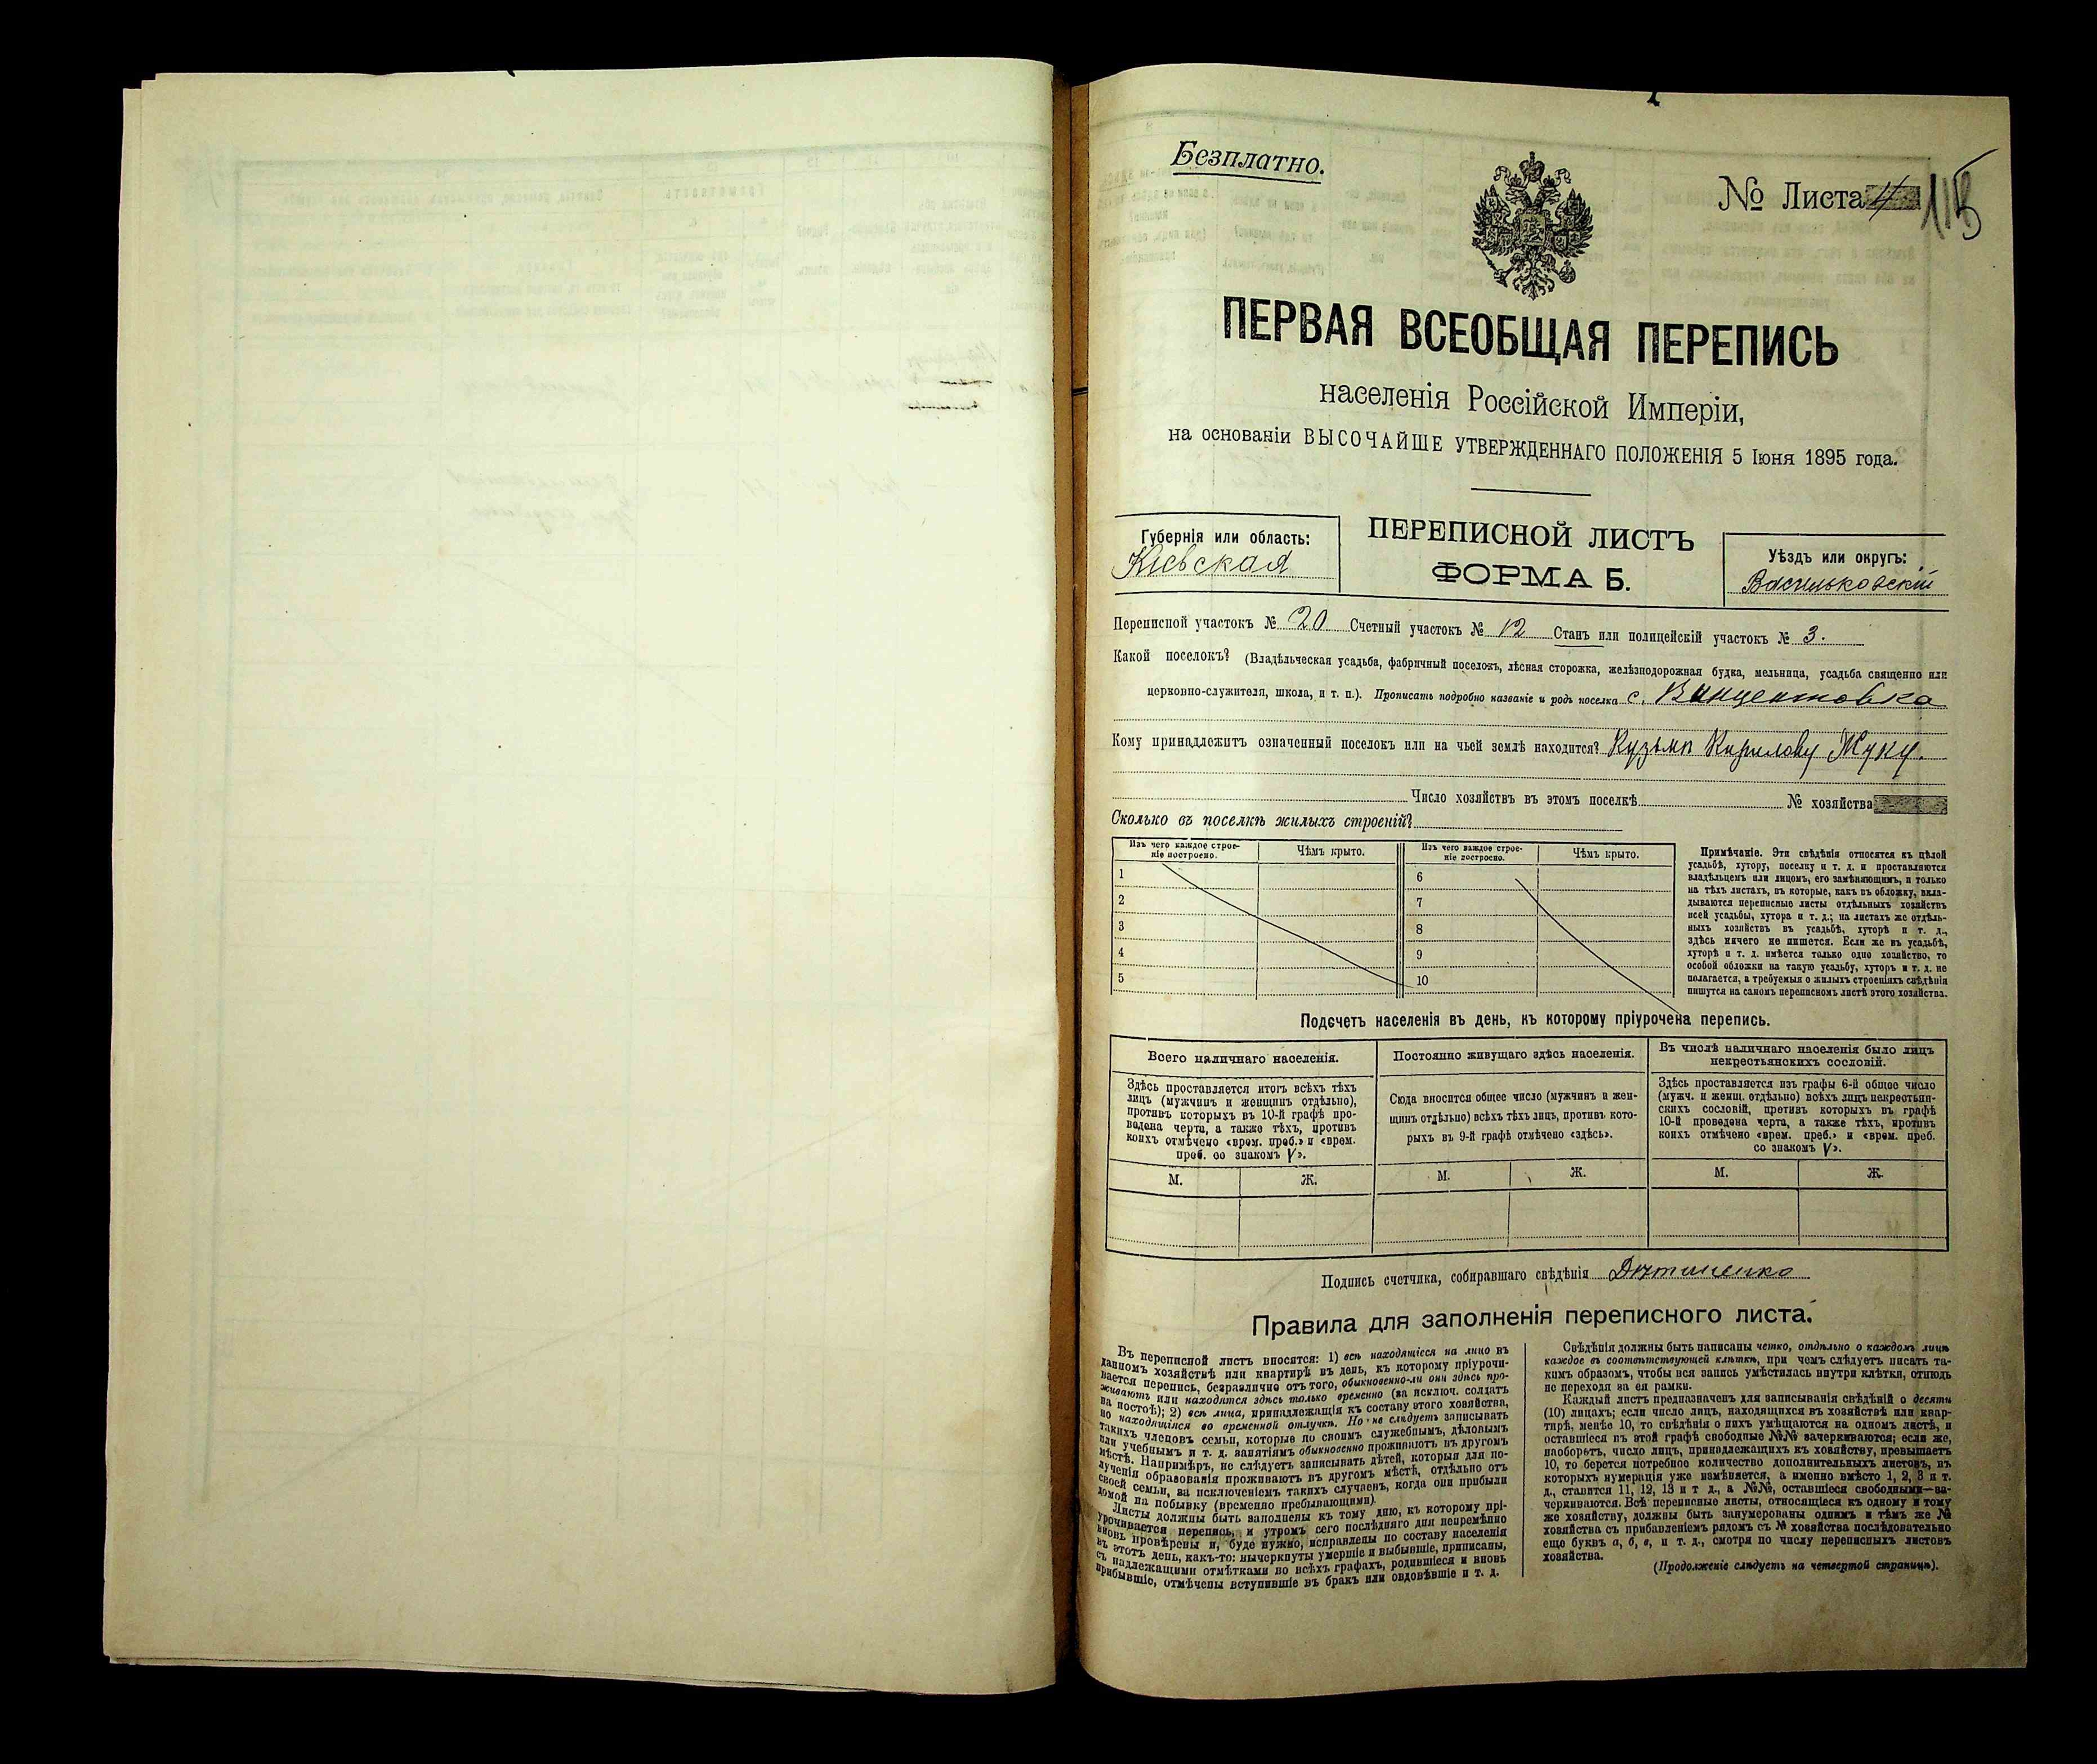 Безплатно.
№ Листа 4
ПЕРВАЯ ВСЕОБЩАЯ ПЕРЕПИСЬ
населенія Россійской Имперіи,
на основаніи ВЫСОЧАЙШЕ УТВЕРЖДЕННАГО ПОЛОЖЕНІЯ 5 Іюня 1895 года.
Губернія или область:
Кіевская
ПЕРЕПИСНОЙ ЛИСТЪ
ФОРМА Б.
Уѣздъ или округъ:
Васильковскій
Переписной участокъ № 20 Счетный участокъ № 12 Станъ или полицейскій участокъ № 3.
Какой поселокъ? (Владѣльческая усадьба, фабричный поселокъ, лѣсная сторожка, желѣзнодорожная будка, мельница, усадьба священно или
церковно-служителя, школа, и т. п.). Прописать подробно названіе и родъ поселка с. Винцентовка
Кому принадлежитъ означенный поселокъ или на чьей землѣ находится? Кузьмѣ Кирилову Жуку.
Число хозяйствъ въ этомъ поселкѣ № хозяйства
Сколько въ поселкѣ жилыхъ строеній?
Изъ чего каждое строе-
ніе построено.
Чѣмъ крыто.
1
2
3
4
5
Изъ чего каждое строе-
ніе построено.
Чѣмъ крыто.
6
7
8
9
10
Примѣчаніе. Эти свѣдѣнія относятся къ цѣлой
усадьбѣ, хутору, поселку и т. д. и проставляются
владѣльцемъ или лицомъ, его замѣняющимъ, и только
на тѣхъ листахъ, въ которые, какъ въ обложку, вкла-
дываются переписные листы отдѣльныхъ хозяйствъ
всей усадьбы, хутора и т. д.; на листахъ же отдѣль-
ныхъ хозяйствъ въ усадьбѣ, хуторѣ и т. д.,
здѣсь ничего не пишется. Если же въ усадьбѣ,
хуторѣ и т. д. имѣется только одно хозяйство, то
особой обложки на такую усадьбу, хуторъ и т. д. не
полагается, а требуемыя о жилыхъ строеніяхъ свѣдѣнія
пишутся на самомъ переписномъ листѣ этого хозяйства.
Подсчетъ населенія въ день, къ которому пріурочена перепись.
Всего наличнаго населенія.
Здѣсь проставляется итогъ всѣхъ тѣхъ
лицъ (мужчинъ и женщинъ отдѣльно),
противъ которыхъ въ 10-й графѣ про-
ведена черта, а также тѣхъ, противъ
коихъ отмѣчено «врем. преб.» и «врем.
преб. со знакомъ V».
М. Ж.
Постоянно живущаго здѣсь населенія.
Сюда вносится общее число (мужчинъ и жен-
щинъ отдѣльно) всѣхъ тѣхъ лицъ, противъ кото-
рыхъ въ 9-й графѣ отмѣчено «здѣсь».
М. Ж.
Въ числѣ наличнаго населенія было лицъ
некрестьянскихъ сословій.
Здѣсь проставляется изъ графы 6-й общее число
(мужч. и женщ. отдѣльно) всѣхъ лицъ некрестьян-
скихъ сословій, противъ которыхъ въ графѣ
10-й проведена черта, а также тѣхъ, противъ
коихъ отмѣчено «врем. преб.» и «врем. преб.
со знакомъ V».
М. Ж.
Подпись счетчика, собиравшаго свѣдѣнія
Правила для заполненія переписного листа.
Въ переписной листъ вносятся: 1) всѣ находящіеся на лицо въ
данномъ хозяйствѣ или квартирѣ въ день, къ которому пріурочи-
вается перепись, безразлично отъ того, обыкновенно-ли они здѣсь про-
живаютъ или находятся здѣсь только временно (за исключ. солдатъ
на постоѣ); 2) всѣ лица, принадлежащія къ составу этого хозяйства,
но находящіяся во временной отлучкѣ. Но не слѣдуетъ записывать
такихъ членовъ семьи, которые по своимъ служебнымъ, дѣловымъ
или учебнымъ и т. д. занятіямъ обыкновенно проживаютъ въ другомъ
мѣстѣ. Напримѣръ, не слѣдуетъ записывать дѣтей, которыя для по-
лученія образованія проживаютъ въ другомъ мѣстѣ, отдѣльно отъ
своей семьи, за исключеніемъ такихъ случаевъ, когда они прибыли
домой на побывку (временно пребывающими).
Листы должны быть заполнены къ тому дню, къ которому прі-
урочивается перепись, и утромъ сего послѣдняго дня непремѣнно
вновь провѣрены и, буде нужно, исправлены по составу населенія
въ этотъ день, какъ-то: вычеркнуты умершіе и выбывшіе, приписаны,
съ надлежащими отмѣтками во всѣхъ графахъ, родившіеся и вновь
прибывшіе, отмѣчены вступившіе въ бракъ или овдовѣвшіе и т. д.
Свѣдѣнія должны быть написаны четко, отдѣльно о каждомъ лицѣ
каждое въ соотвѣтствующей клѣткѣ, при чемъ слѣдуетъ писать та-
кимъ образомъ, чтобы вся запись умѣстилась внутри клѣтки, отнюдь
не переходя за ея рамки.
Каждый листъ предназначенъ для записыванія свѣдѣній о десяти
(10) лицахъ; если число лицъ, находящихся въ хозяйствѣ или квар-
тирѣ, менѣе 10, то свѣдѣнія о нихъ умѣщаются на одномъ листѣ, и
оставшіеся въ этой графѣ свободные №№ зачеркиваются; если же,
наоборотъ, число лицъ, принадлежащихъ къ хозяйству, превышаетъ
10, то берется потребное количество дополнительныхъ листовъ, въ
которыхъ нумерація уже измѣняется, а именно вмѣсто 1, 2, 3 и т.
д., ставится 11, 12, 13 и т д., а №№, оставшіеся свободными—за-
черкиваются. Всѣ переписные листы, относящіеся къ одному и тому
же хозяйству, должны быть занумерованы однимъ и тѣмъ же №
хозяйства съ прибавленіемъ рядомъ съ № хозяйства послѣдовательно
еще буквъ а, б, в, и т. д., смотря по числу переписныхъ листовъ
хозяйства.
(Продолженіе слѣдуетъ на четвертой страницѣ).